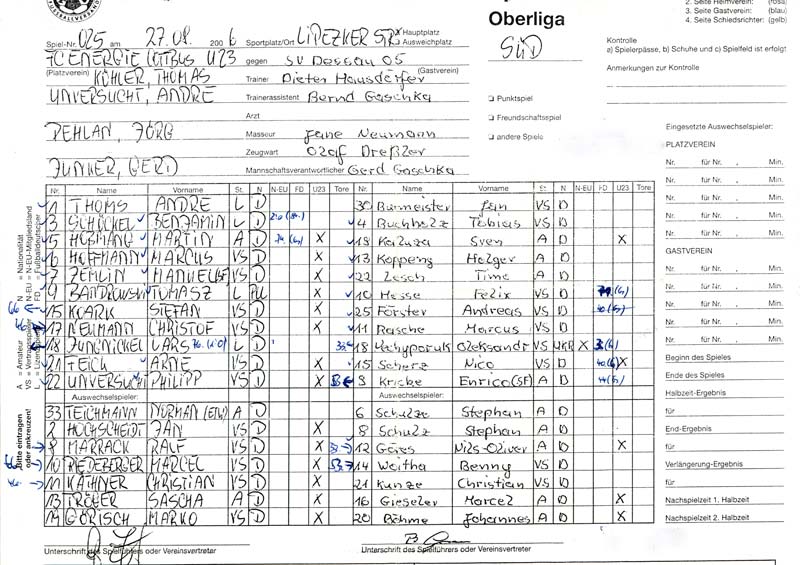 FUSSBALLVERBAND
Oberliga
SÜD
2. Seite Heimverein: (rosa)
3. Seite Gastverein: (blau)
4. Seite Schiedsrichter: (gelb)
Kontrolle
a) Spielerpässe, b) Schuhe und c) Spielfeld ist erfolgt
Anmerkungen zur Kontrolle
Spiel-Nr. 025 am 27.08. 2006 Sportplatz/Ort LIPEZKER STR x Hauptplatz
Ausweichplatz
FC ENERGIE COTTBUS U23 gegen SV Dessau 05
(Platzverein) (Gastverein)
KÖHLER, THOMAS Trainer Dieter Hausdörfer
UNVERSUCHT, ANDRE Trainerassistent Bernd Gaschka
Arzt
PEHLAN, JÖRG Masseur Jane Neumann
Zeugwart Olaf Dreßler
JUNKER, GERD Mannschaftsverantwortlicher Gerd Gaschka
Punktspiel
Freundschaftsspiel
andere Spiele
Nr. Name Vorname St. N N-EU FD U23 Tore Nr. Name Vorname St N N-EU FD U23 Tore
1 THOMS ANDRE L D 30 Burmeister VS D
3 SCHÖCKEL BENJAMIN L D 4 Buchholz Tobias VS D
5 HOSMANG MARTIN A D X 19 Kaluza Sven A D X
6 HOFFMANN MARCUS VS D X 13 Kopping Holger A D
7 ZEMLIN MANUEL VS D X 22 Lesch Timo A D
9 BANDROWSKI TOMASZ L PL X 10 Hesse Felix VS D
15 KOARK STEFAN VS D X 25 Förster Andreas VS D
17 NEUMANN CHRISTOF VS D X 11 Rasche Marcus VS D
18 JUNGNICKEL LARS L D 18 Vechyporuk Oleksandr VS UKR X
21 TEICH ARNE VS D X 15 Scherz Nico VS D X
22 UNVERSUCHT PHILIPP VS D X 9 Kricke Enrico (SF) A D
Auswechselspieler: Auswechselspieler:
33 TEICHMANN NORMAN (ETW) A D 6 Schulze Stephan A D
2 HOCHSCHEIDT JAN VS D X 8 Schulz Stephan A D
8 MARRACK RALF VS D X 12 Göres Nils-Oliver A D X
10 RIEDEBERGER MARCEL VS D X 14 Weitha Benny VS D
11 KÄTHNER CHRISTIAN VS D X 21 Kunze Christian VS D
13 TRÖGER SASCHA A D X 16 Gieseler Marcel A D X
19 GÖRISCH MARKO VS D X 20 Böhme Johannes A D X
Unterschrift des Spielführers oder Vereinsvertreter Unterschrift des Spielführers oder Vereinsvertreter
Bitte eintragen oder ankreuzen!
A = Amateur
VS = Vertragsspieler
N = Nationalität
N-EU = N-EU-Mitgliedsland
FD = Fußballdeutscher
Eingesetzte Auswechselspieler:
PLATZVEREIN
Nr. für Nr. , Min.
Nr. für Nr. , Min.
Nr. für Nr. , Min.
Nr. für Nr. , Min.
GASTVEREIN
Nr. für Nr. , Min.
Nr. für Nr. , Min.
Nr. für Nr. , Min.
Nr. für Nr. , Min.
Nr. für Nr. , Min.
Beginn des Spieles
Ende des Spieles
Halbzeit-Ergebnis
für
End-Ergebnis
für
Verlängerung-Ergebnis
für
Nachspielzeit 1. Halbzeit
Nachspielzeit 2. Halbzeit